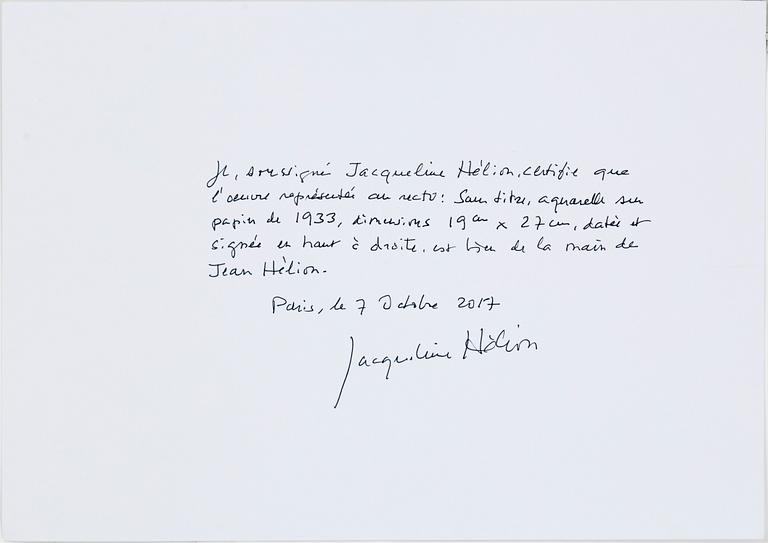 Je, soussigné Jacqueline Hélion, certifie que
l'oeuvre représentée au recto : Sans titre, aquarelle sur
papier de 1933, dimensions 19 cm x 27 cm, datée et
signée en haut à droite, est bien de la main de
Jean Hélion.
Paris, le 7 Octobre 2017
Jacqueline Hélion